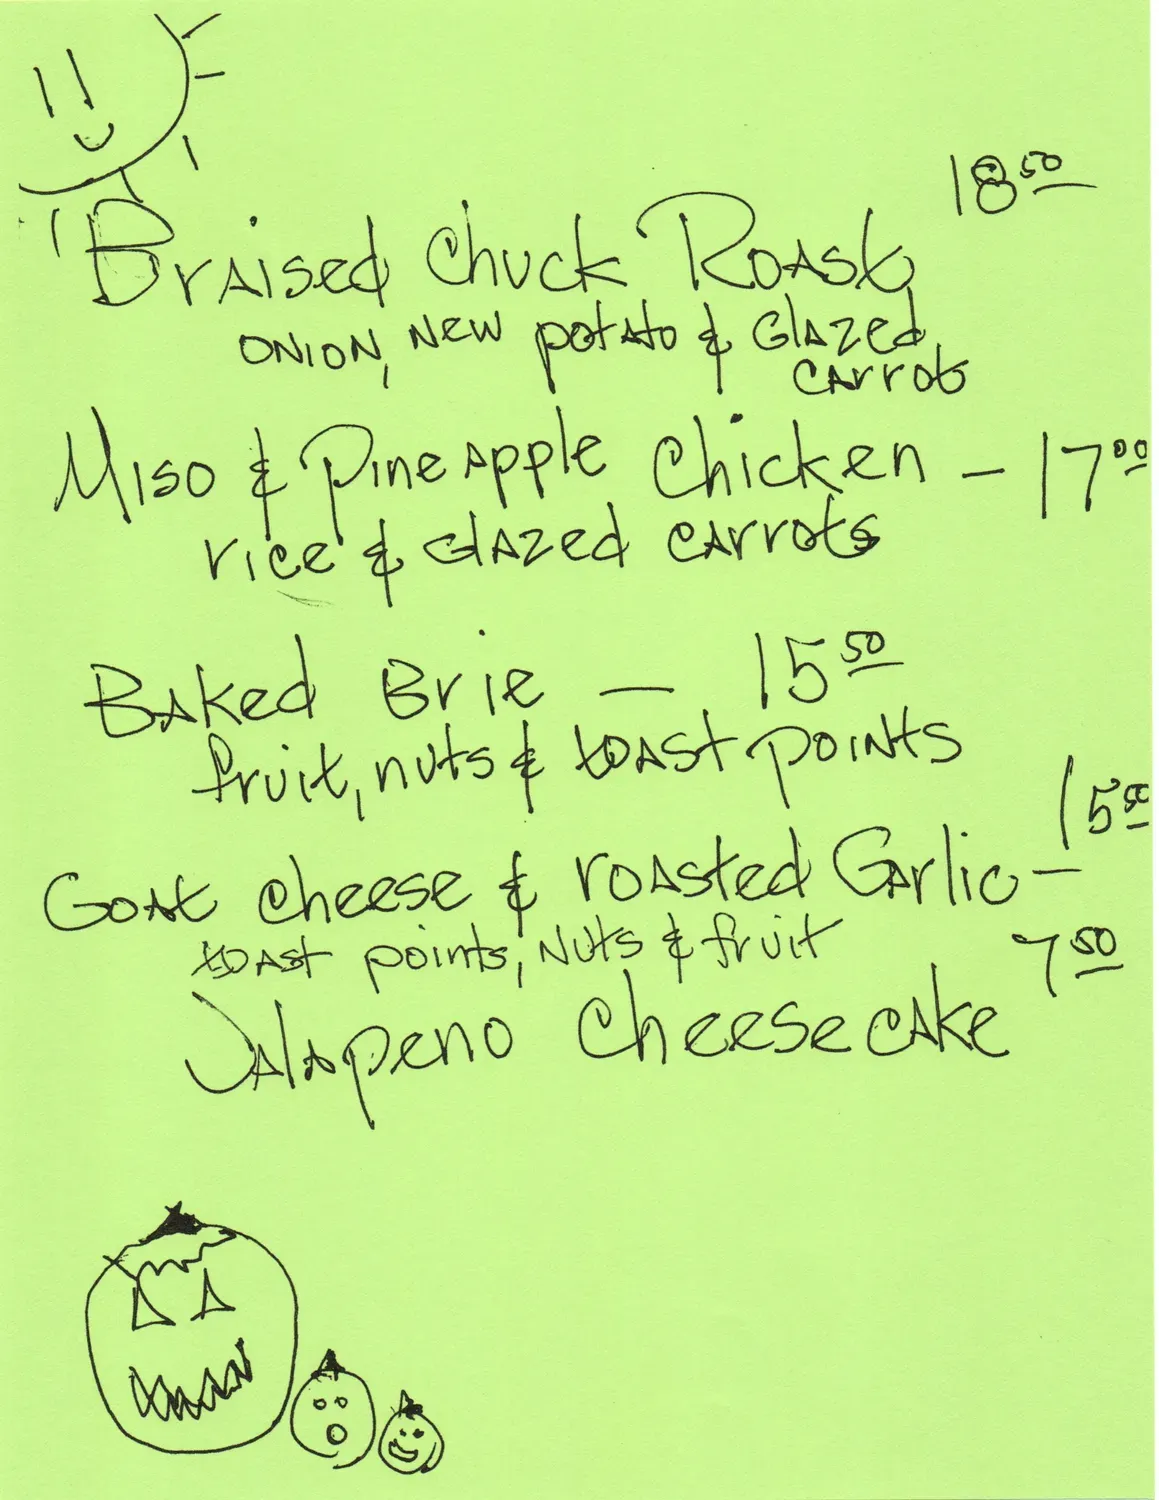 18 50
Braised Chuck Roast
onion, new potato & Glazed
carrots
Miso & Pineapple Chicken - 17 00
rice & Glazed carrots
Baked Brie - 15 50
fruit, nuts & toast points
15 50
Goat cheese & roasted Garlic -
toast points, nuts & fruit
7 50
Jalapeno Cheesecake